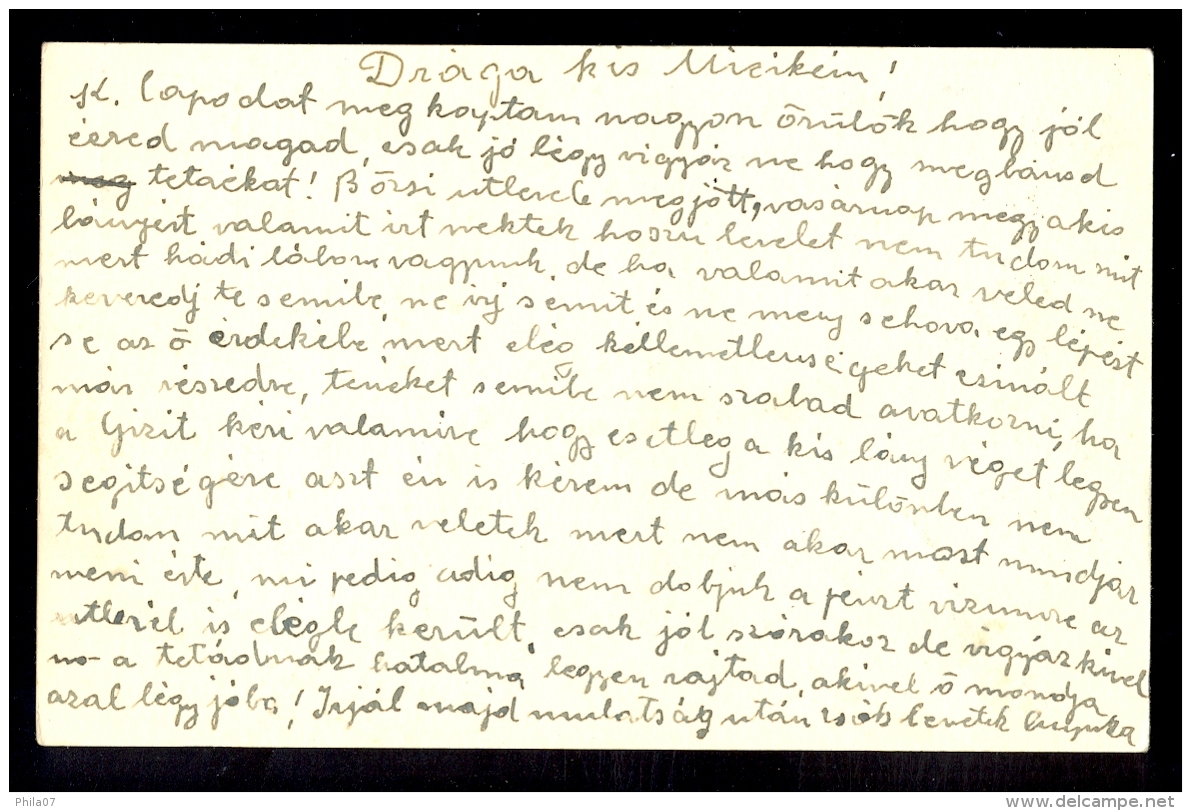 Drága kis Micikém!
K. lapodat megkaptam nagyon örülök hogy jól
éered magad, csak jó légy vigyáz ne hogy megbánsd
meg tetaékat! Bözsi utlevele megjött, vasárnap megy a kis
lányért valamit irt nektek hoszu levelet nem tudom mit
mert hádi lábon vagyunk, de ha valamit akar veled ne
keveredj te semibe, ne irj semit és ne meny sehova egy lépést
se az ö érdekébe mert elég kellemetlenségeket csinált
már részedre, teneket semibe nem szabad avatkozni, ha
a Gizit kéri valamire hogy esetleg a kis lány véget legyen
segitségére aszt én is kérem de más különben nem
tudom mit akar veletek mert nem akar most mindjár
meni érte, mi pedig adig nem dobjuk a pénzt vizumre az
utlevél is elégbe került, csak jól szórakoz de vigyáz kivel
no a tetádnak hatalma legyen rajtad, akivel ö mondja
azal légy jóba! Irjál majd mulatság után csók benetek anyuka
Phila07
www.delcampe.net